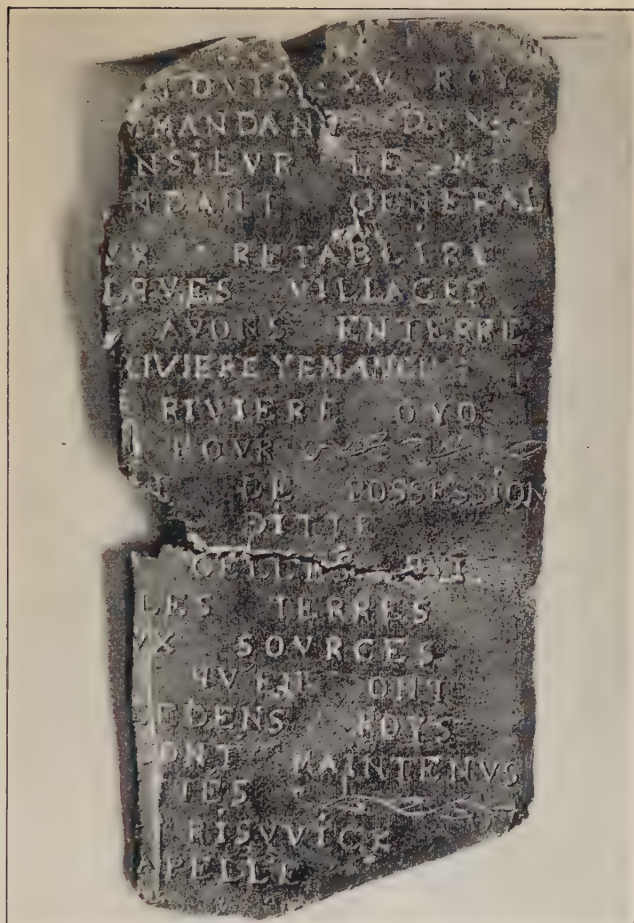 OVIS XV ROY
MANDANT DVN
NSIEVR LE M
NDANT GENERAL
VR RETABLIR
LQVES VILLAGES
AVONS ENTERRE
RIVIERE YENANGU
RIVIERE OYO
POVR
DE POSSESSION
DITTE
CELLES QVI
LES TERRES
VX SOVRCES
QVEN ONT
EDENS ROYS
ONT MAINTENVS
TES
RISVVICK
APELLE